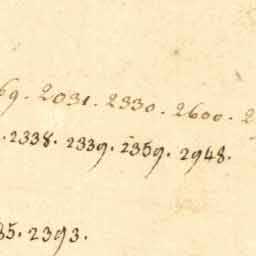 69. 2031. 2330. 2600. 2
. 2338. 2339. 2359. 2948.
35. 2393.